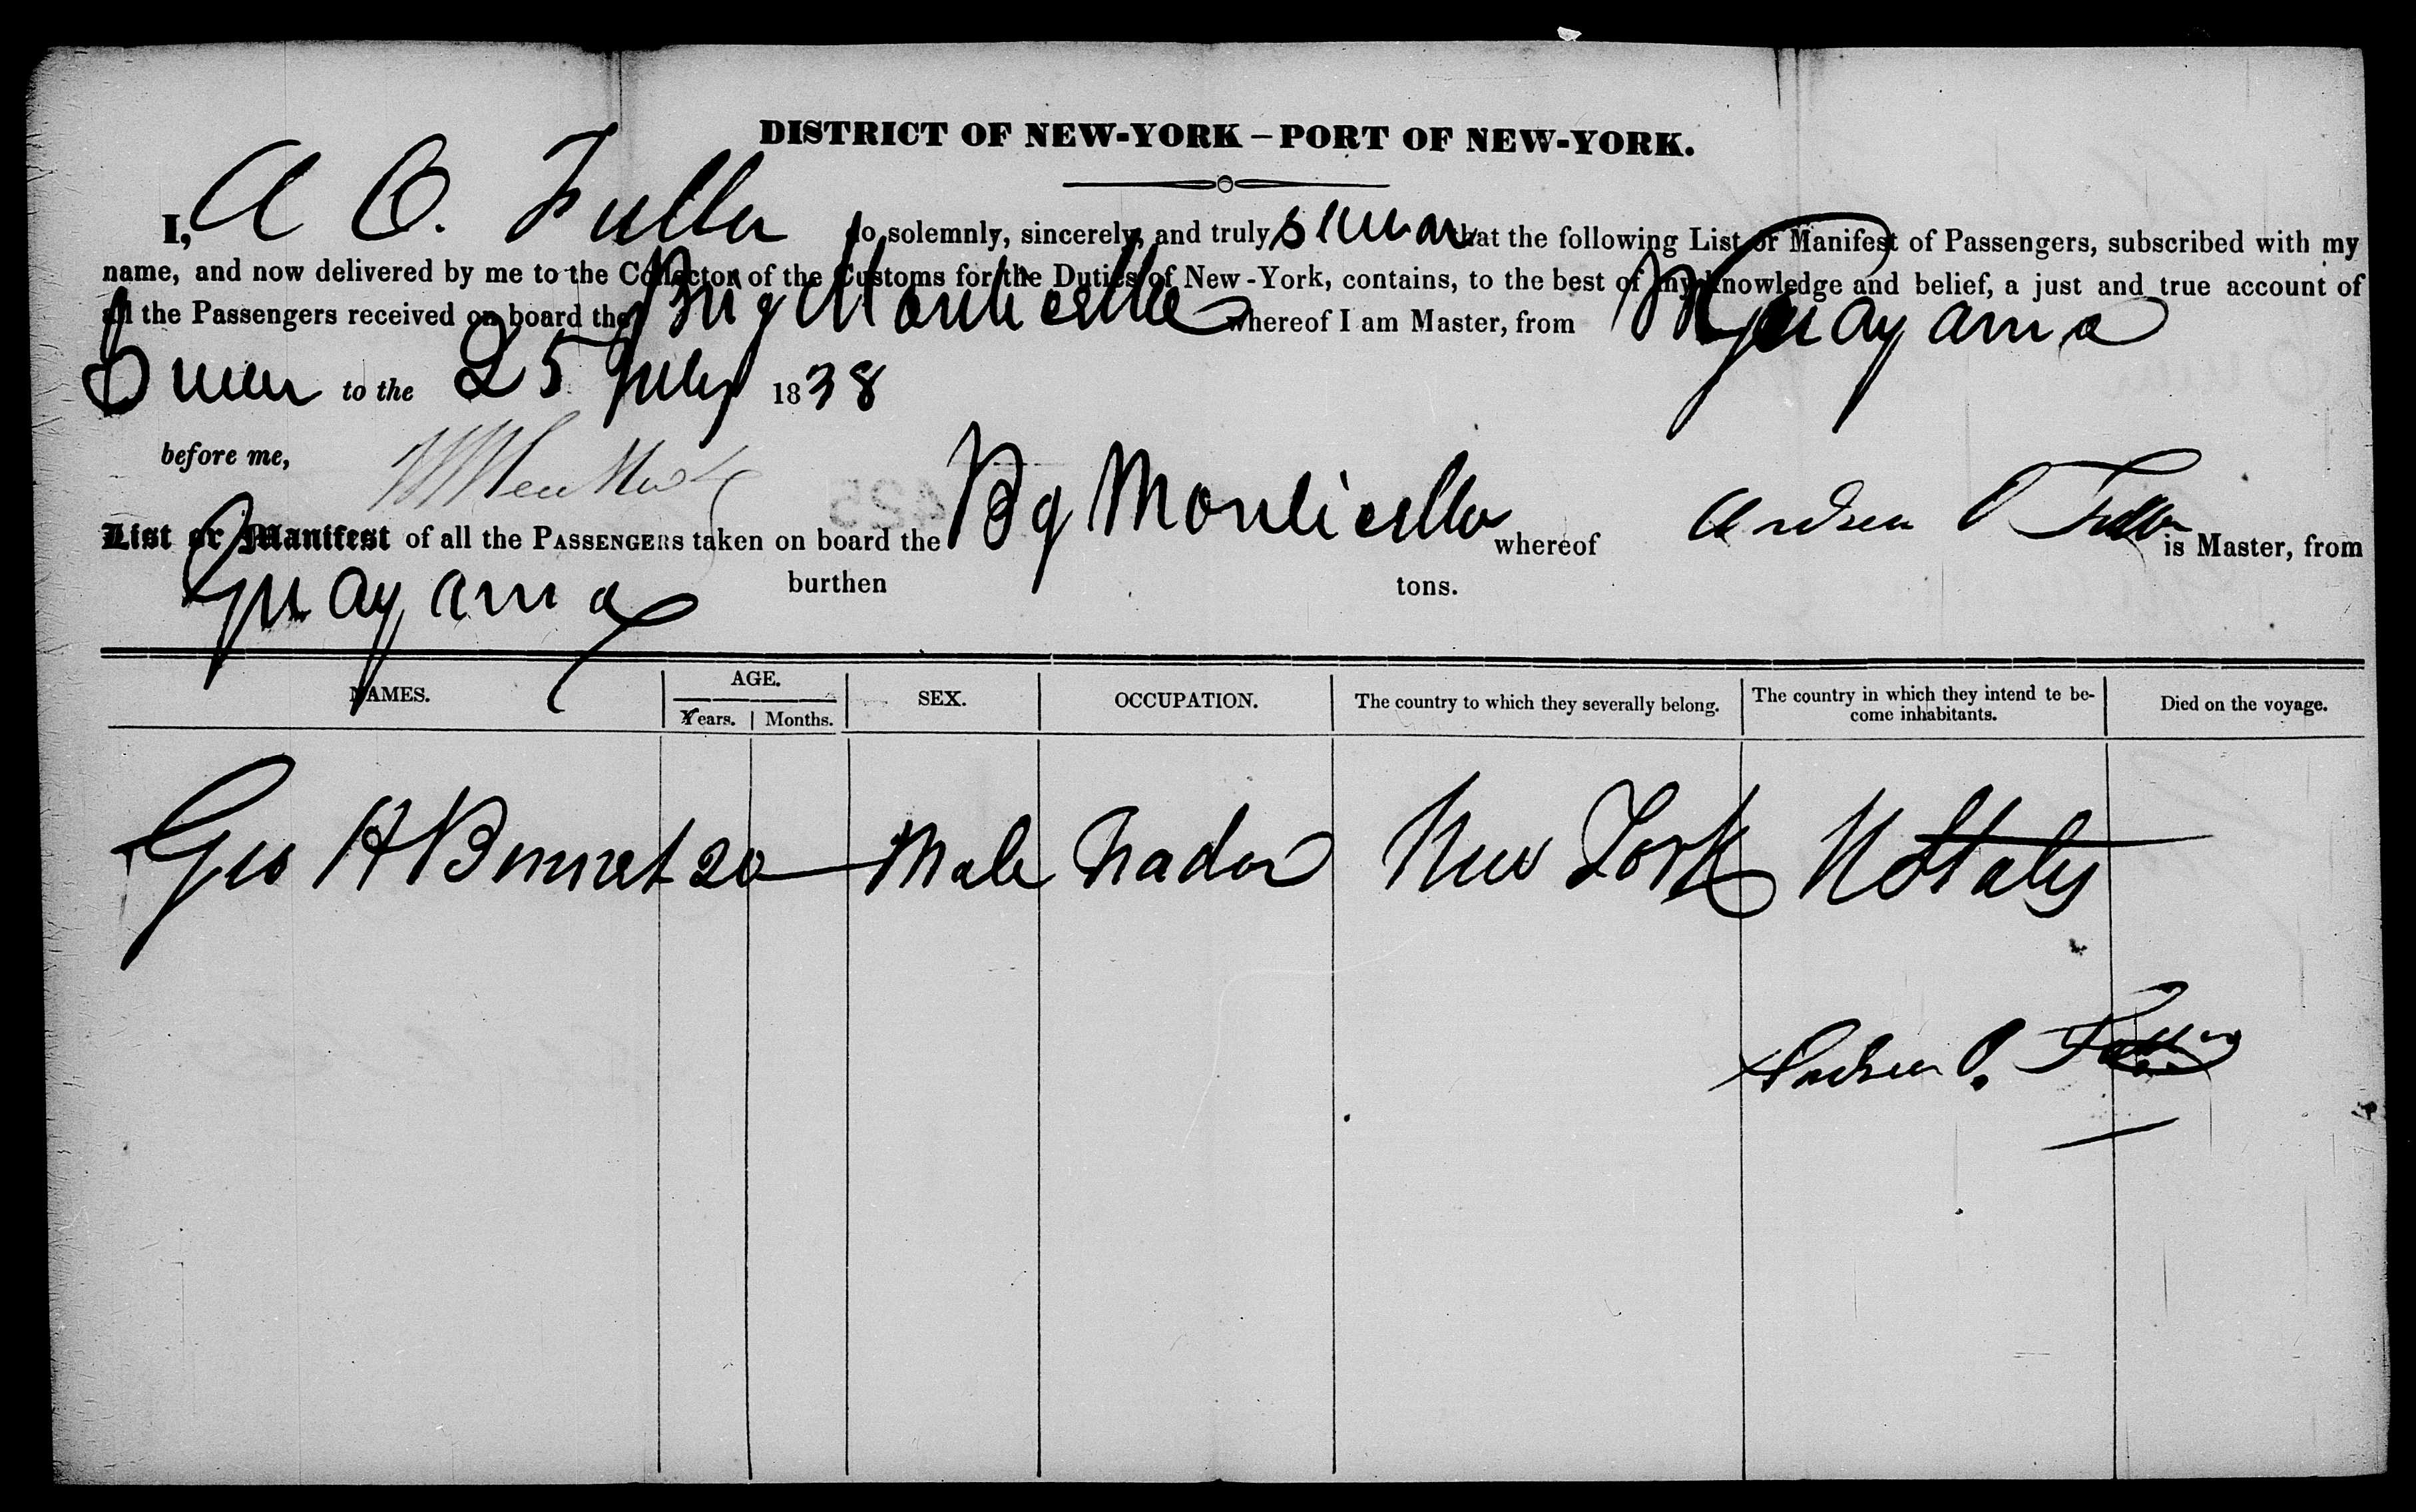 DISTRICT OF NEW-YORK – PORT OF NEW-YORK.
I, A O. Fuller do solemnly, sincerely, and truly swear that the following List or Manifest of Passengers, subscribed with my
name, and now delivered by me to the Collector of the Customs for the Duties of New-York, contains, to the best of my knowledge and belief, a just and true account of
all the Passengers received on board the Brig Monticello whereof I am Master, from Guayama
Sworn to the 25 July 1838
before me,
List or Manifest of all the PASSENGERS taken on board the Bg Monticello whereof Andrew O Fuller is Master, from
Guayama burthen tons.
NAMES. AGE. Years. Months. SEX. OCCUPATION. The country to which they severally belong. The country in which they intend to be- come inhabitants. Died on the voyage.
Geo H Bennet 20 Male Trador New York U States
Andrew O. Fuller